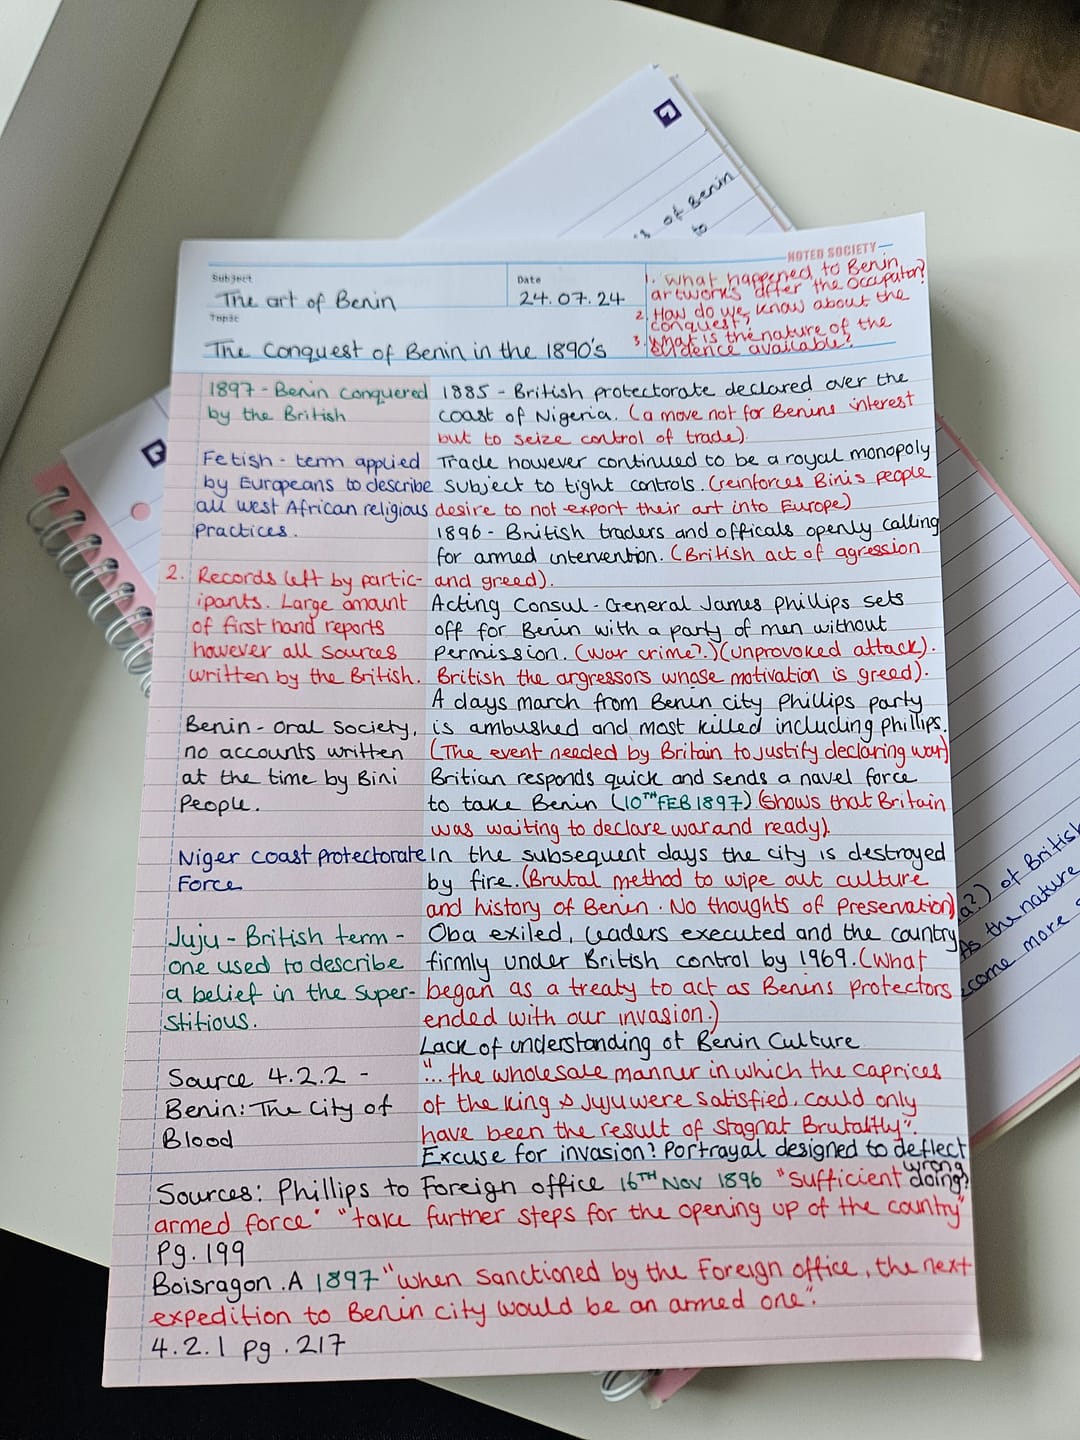 of Benin
to
NOTED SOCIETY
Subject
The art of Benin
Date
24.07.24
Topic
The Conquest of Benin in the 1890's
1. What happened to Benin
artworks after the occupation?
2. How do we know about the
conquest?
3. What is the nature of the
evidence available?
1897 - Benin conquered
by the British
Fetish - term applied
by Europeans to describe
all west African religious
Practices.
2. Records left by partic-
ipants. Large amount
of first hand reports
however all sources
written by the British.
Benin - Oral Society,
no accounts written
at the time by Bini
People.
Niger coast protectorate
Force
Juju - British term -
one used to describe
a belief in the Super-
stitious.
Source 4.2.2 -
Benin: The City of
Blood
1885 - British protectorate declared over the
coast of Nigeria. (a move not for Benins interest
but to seize control of trade).
Trade however continued to be a royal monopoly
subject to tight controls. (reinforces Binis people
desire to not export their art into Europe)
1896 - British traders and officals openly calling
for armed intervention. (British act of agression
and greed).
Acting Consul - General James Phillips sets
off for Benin with a party of men without
Permission. (war crime?.) (unprovoked attack).
British the argressors whose motivation is greed).
A days march from Benin city Phillips party
is ambushed and most killed including phillips.
(The event needed by Britain to justify declaring war)
Britian responds quick and sends a navel force
to take Benin (10TH FEB 1897) (Shows that Britain
was waiting to declare war and ready).
In the subsequent days the city is destroyed
by fire. (Brutal method to wipe out culture
and history of Benin. No thoughts of Preservation)
Oba exiled, leaders executed and the country
firmly under British control by 1969. (What
began as a treaty to act as Benins protectors
ended with our invasion.)
Lack of understanding of Benin Culture
"... the wholesale manner in which the caprices
of the king & Juju were satisfied, could only
have been the result of stagnat Brutality".
Excuse for invasion? Portrayal designed to deflect
wrong
doing?
Sources: Phillips to Foreign office 16TH Nov 1896 "Sufficient
armed force" "take further steps for the opening up of the country"
Pg. 199
Boisragon .A 1897 "when sanctioned by the Foreign office, the next
expedition to Benin city would be an armed one".
4.2.1 pg. 217
a?) of British
As the nature
come more